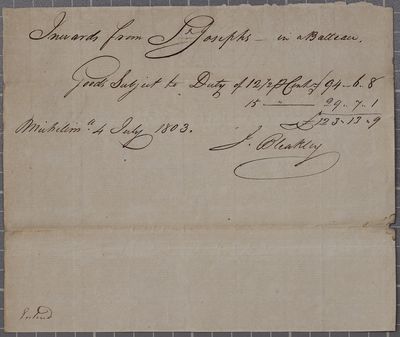 Inwards from St Josephs — in a Batteau.
Goods Subject to Duty of 12½ ⅌ Cent £94-6-8
15 — " — 29-7-1
£123-13-9
Michilima 4 July 1803.
J. Bleakley
Enterd